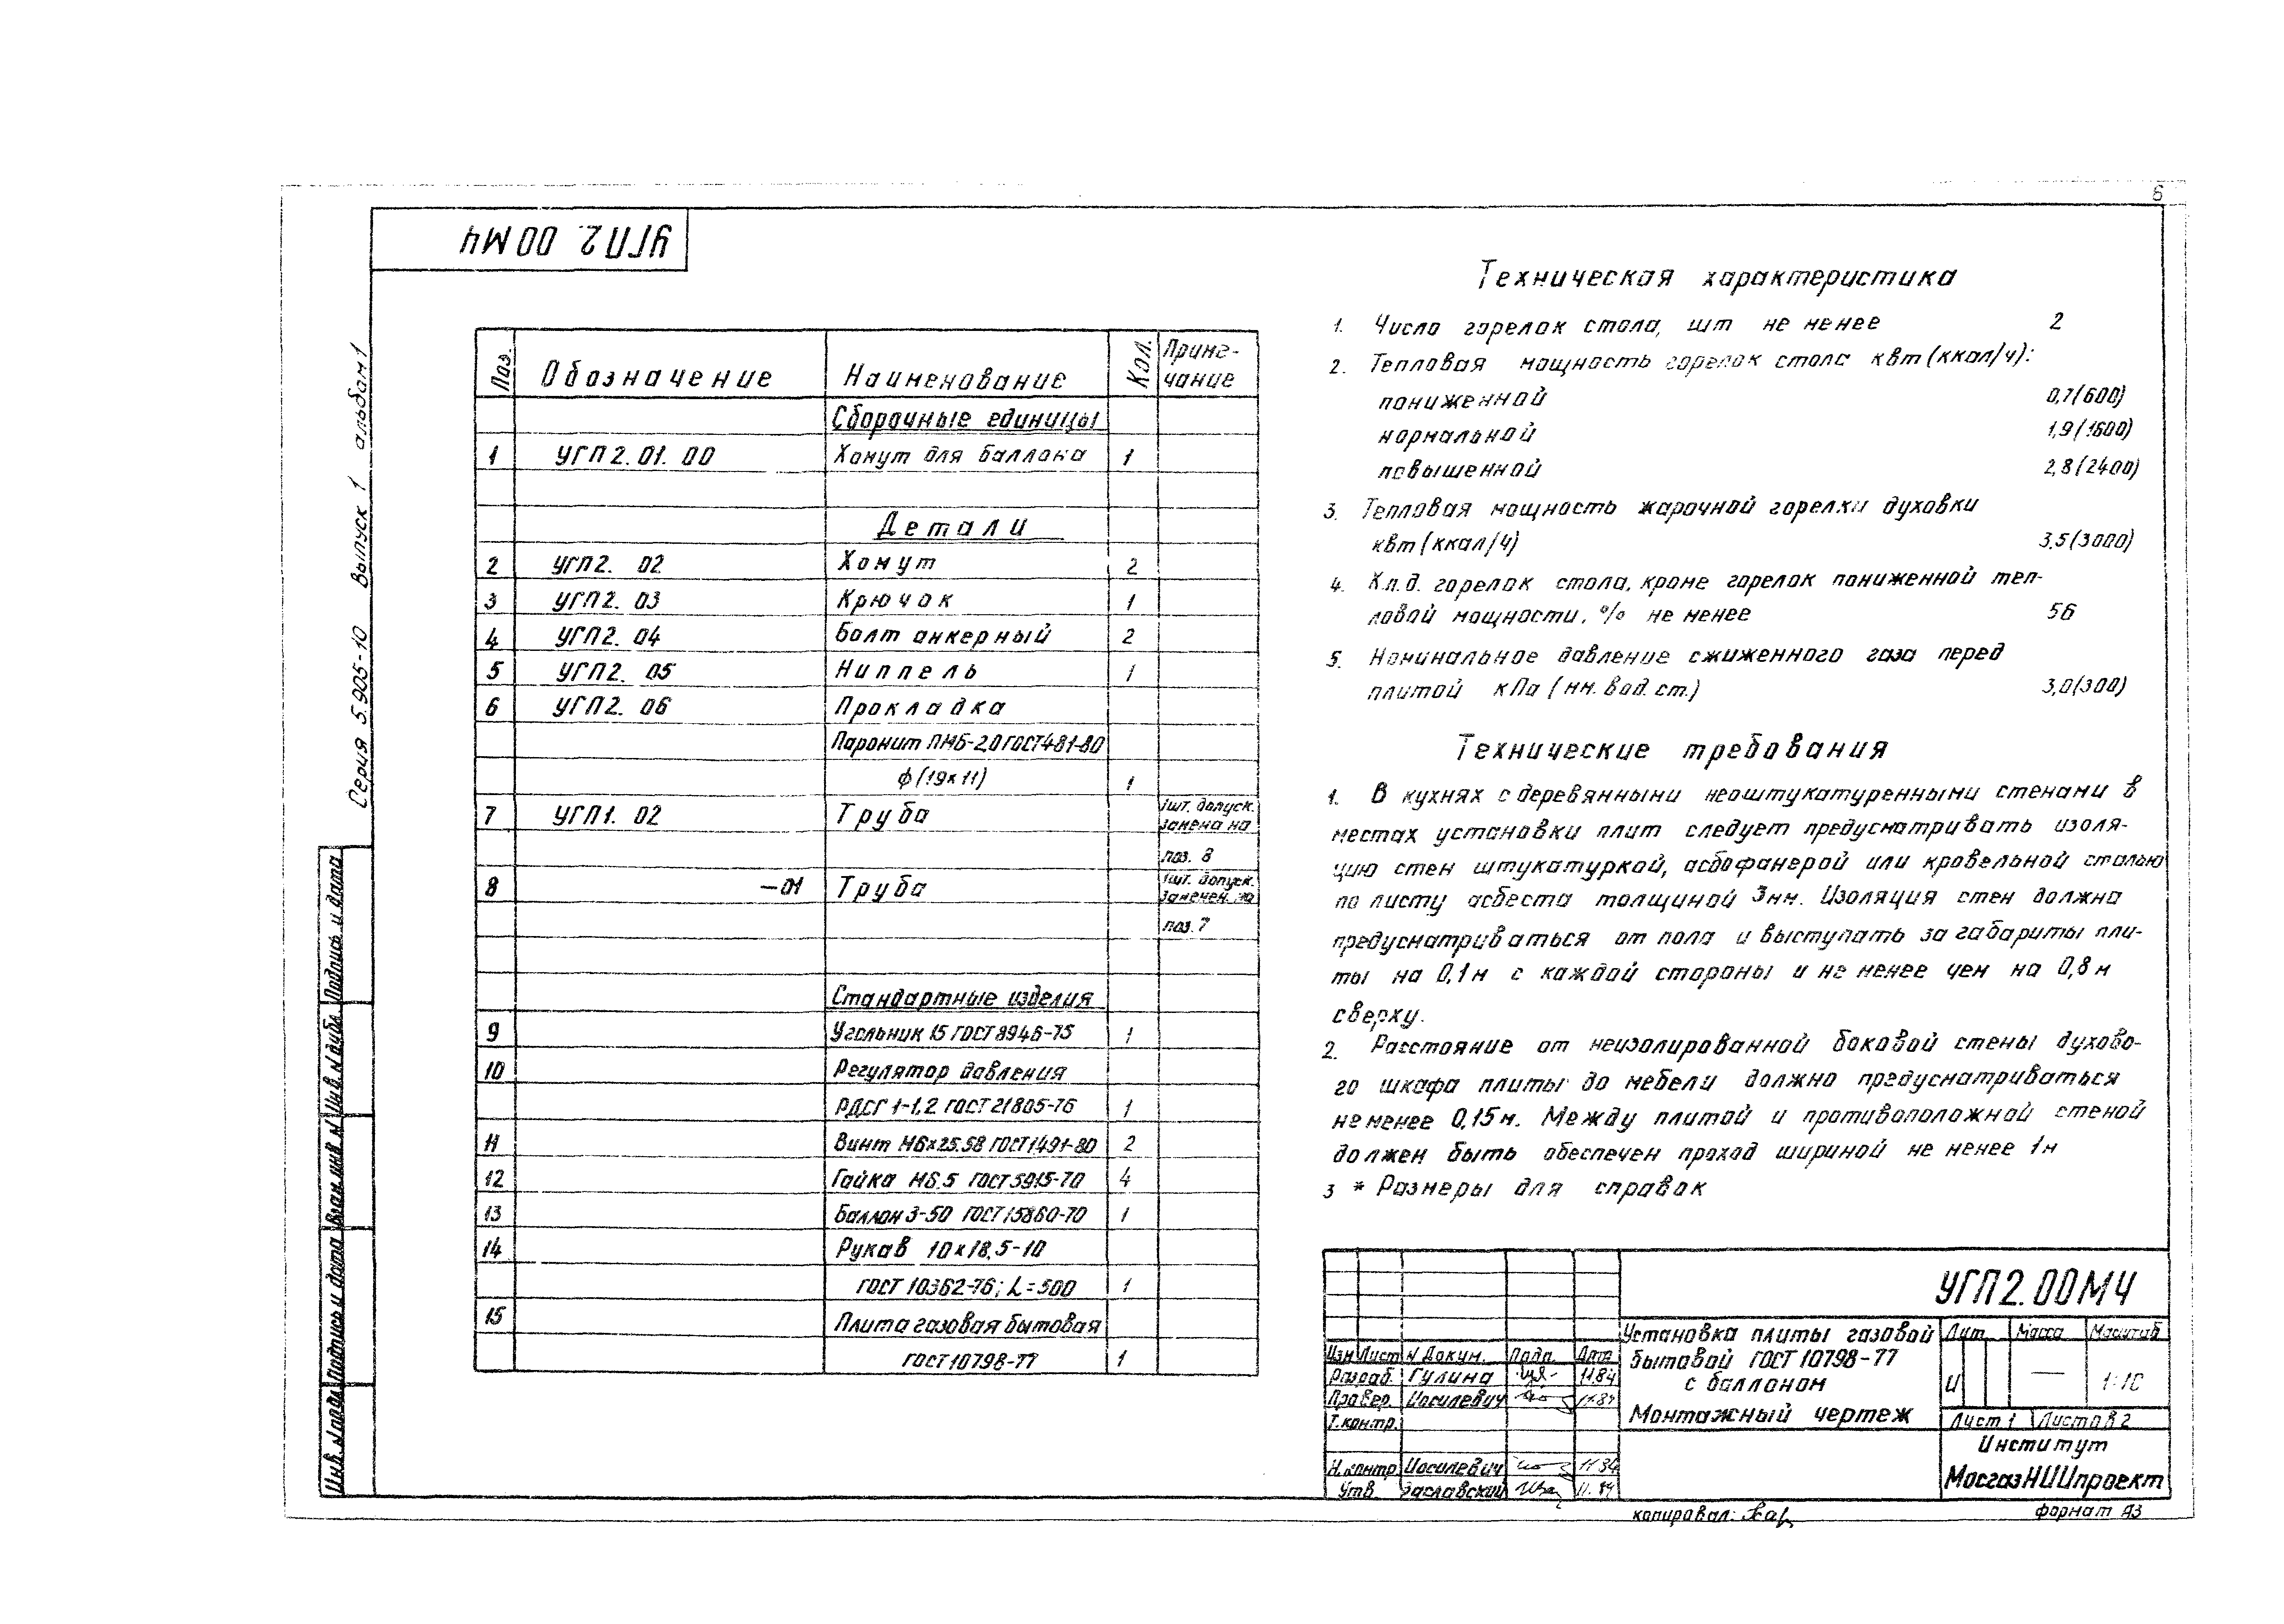 6
УГП2. 00МЧ
Серия 5.905-10 Выпуск 1 альбом 1
Поз. Обозначение Наименование Кол. Примечание
Сборочные единицы
1 УГП2.01.00 Хомут для баллона 1
Детали
2 УГП2. 02 Хомут 2
3 УГП2. 03 Крючок 1
4 УГП2. 04 Болт анкерный 2
5 УГП2. 05 Ниппель 1
6 УГП2. 06 Прокладка
Паронит ПМБ-2,0 ГОСТ 481-80
ф(19х11) 1
7 УГП1. 02 Труба 1шт. допуск.
замена на
поз. 8
8 -01 Труба 1шт. допуск.
замен. на
поз. 7
Стандартные изделия
9 Угольник 15 ГОСТ 8946-75 1
10 Регулятор давления
РДСГ 1-1,2 ГОСТ 21805-76 1
11 Винт М6х25.58 ГОСТ 1491-80 2
12 Гайка М6.5 ГОСТ 5915-70 4
13 Баллон 3-50 ГОСТ 15860-70 1
14 Рукав 10х18,5-10
ГОСТ 10362-76; L=500 1
15 Плита газовая бытовая
ГОСТ 10798-77 1
Техническая характеристика
1. Число горелок стола, шт не менее 2
2. Тепловая мощность горелок стола квт (ккал/ч):
пониженной 0,7(600)
нормальной 1,9(1600)
повышенной 2,8(2400)
3. Тепловая мощность жарочной горелки духовки
квт (ккал/ч) 3,5(3000)
4. К.п.д. горелок стола, кроме горелок пониженной теп-
ловой мощности, % не менее 56
5. Номинальное давление сжиженного газа перед
плитой кПа (мм. вод. ст.) 3,0(300)
Технические требования
1. В кухнях с деревянными неоштукатуренными стенами в
местах установки плит следует предусматривать изоля-
цию стен штукатуркой, асбофанерой или кровельной сталью
по листу асбеста толщиной 3мм. Изоляция стен должна
предусматриваться от пола и выступать за габариты пли-
ты на 0,1м с каждой стороны и не менее чем на 0,8м
сверху.
2. Расстояние от неизолированной боковой стены духово-
го шкафа плиты до мебели должно предусматриваться
не менее 0,15м. Между плитой и противоположной стеной
должен быть обеспечен проход шириной не менее 1м
3 * Размеры для справок
УГП2.00МЧ
Установка плиты газовой
бытовой ГОСТ 10798-77
с баллоном
Монтажный чертеж
Лит. Масса Масштаб
И — 1:10
Лист 1 Листов 2
Институт
МосгазНИИпроект
Изм Лист N Докум. Подп. Дата
Разраб. Гулина 11.84
Провер. Иосилевич 11.84
Т.контр.
Н.контр Иосилевич 11.84
Утв. Заславский 11.84
копировал:
формат А3
Подпись и дата
Инв. N дубл.
Взам. инв N
Подпись и дата
Инв. N подл.